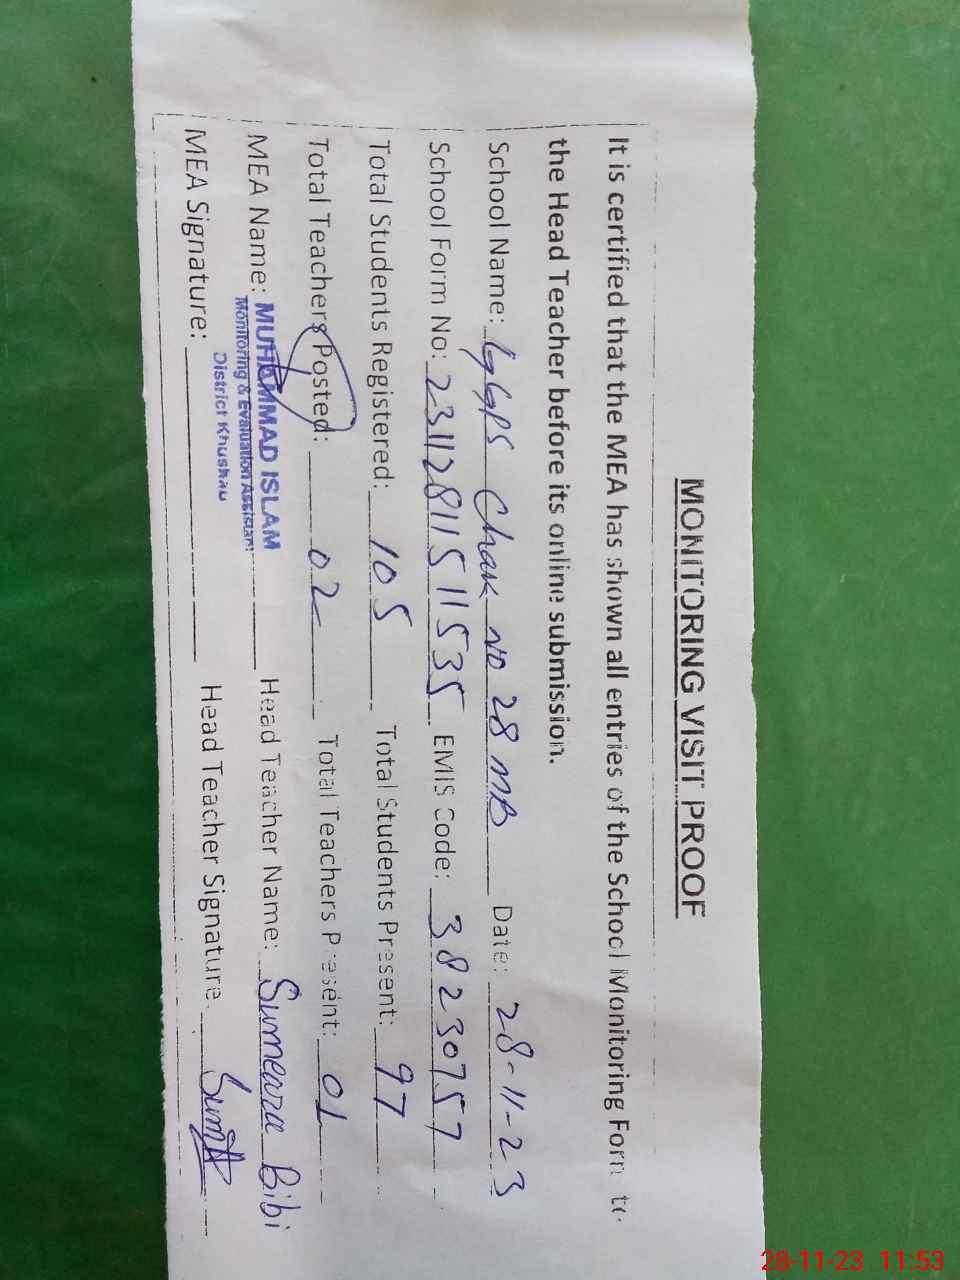 MONITORING VISIT PROOF
It is certified that the MEA has shown all entries of the School Monitoring Form to
the Head Teacher before its online submission.
School Name: GGPS Chak NO 28 MB Date: 28-11-23
School Form No: 23112811511535 EMIS Code: 38230757
Total Students Registered: 105 Total Students Present: 97
Total Teachers Posted: 02 Total Teachers Present: 01
MEA Name: MUHAMMAD ISLAM Head Teacher Name: Sumeara Bibi
Monitoring & Evaluation Assistant
District Khushab
MEA Signature: Head Teacher Signature:
28-11-23 11:53